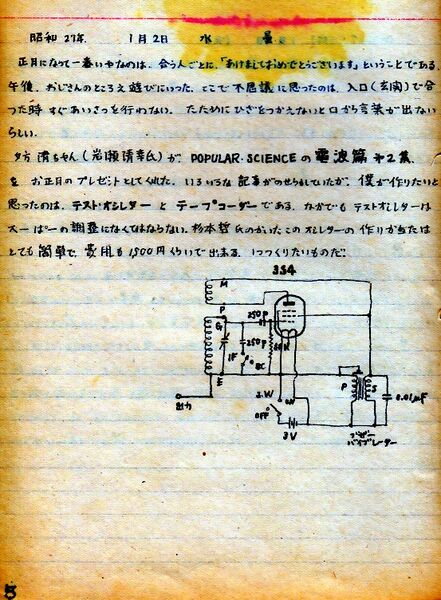 昭和27年 1月2日 水 曇
正月になって一番いやなのは、会う人ごとに、「あけましておめでとうございます」ということである。
午後、おじさんのところえ遊びにいった。ここで不思議に思ったのは、入口(玄関)で合
った時すぐあいさつを行わない。たたみにひざをつかえないと口から言葉が出ない
らしい。
夕方 清ちゃん(岩瀬清幸氏)が POPULAR・SCIENCEの電波篇 第2集
を お正月のプレゼントとしてくれた。いろいろな記事がのせられていたが、僕が作りたいと
思ったのは、テスト・オシレターとテープコーダーである。なかでもテストオシレターは
スーぱーの調整になくてはならない。杉本哲氏のかいたこのオシレターの作り方は
とても簡単で、費用も1,500円くらいで出来る。いつつくりたいものだ!
3S4
M
P
G
250P
250P
1F
BC
E
出力
S.W
OFF
ON
3V
P
S
0.01μF
ブザー
バイブレーター
5